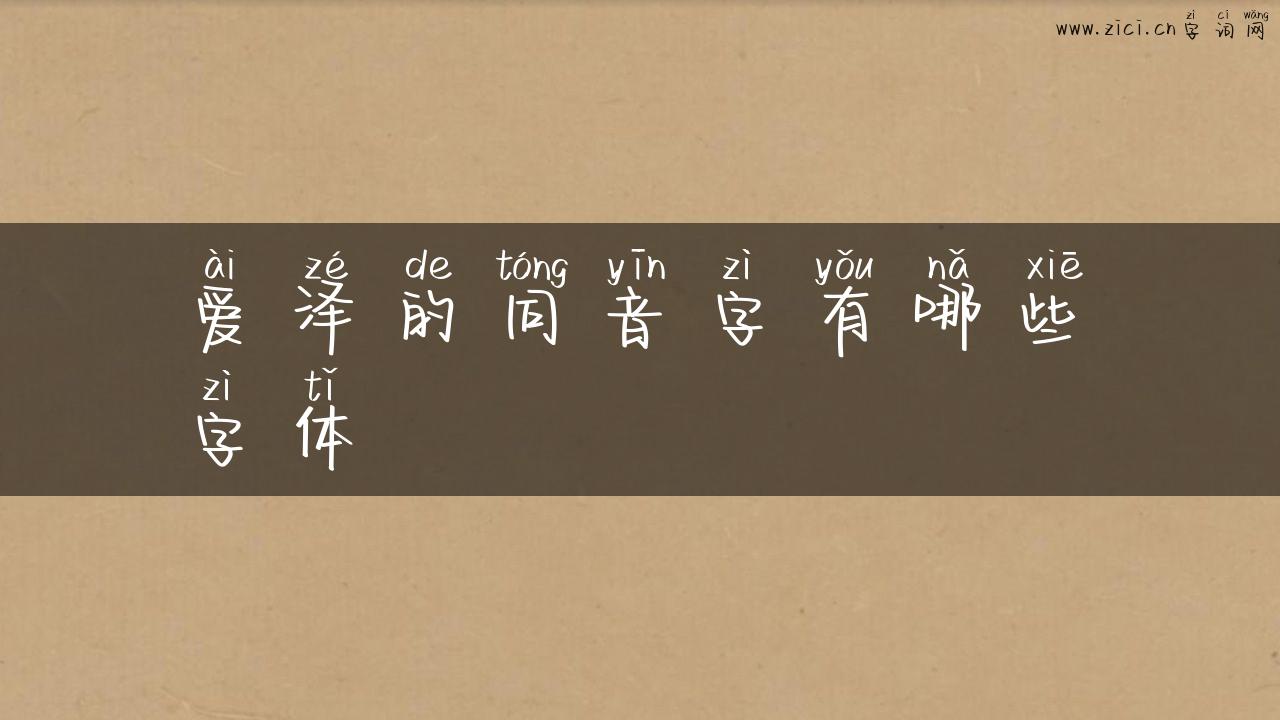 zì cí wǎng
www.zici.cn 字词网
ài zé de tóng yīn zì yǒu nǎ xiē
爱泽的同音字有哪些
zì tǐ
字体